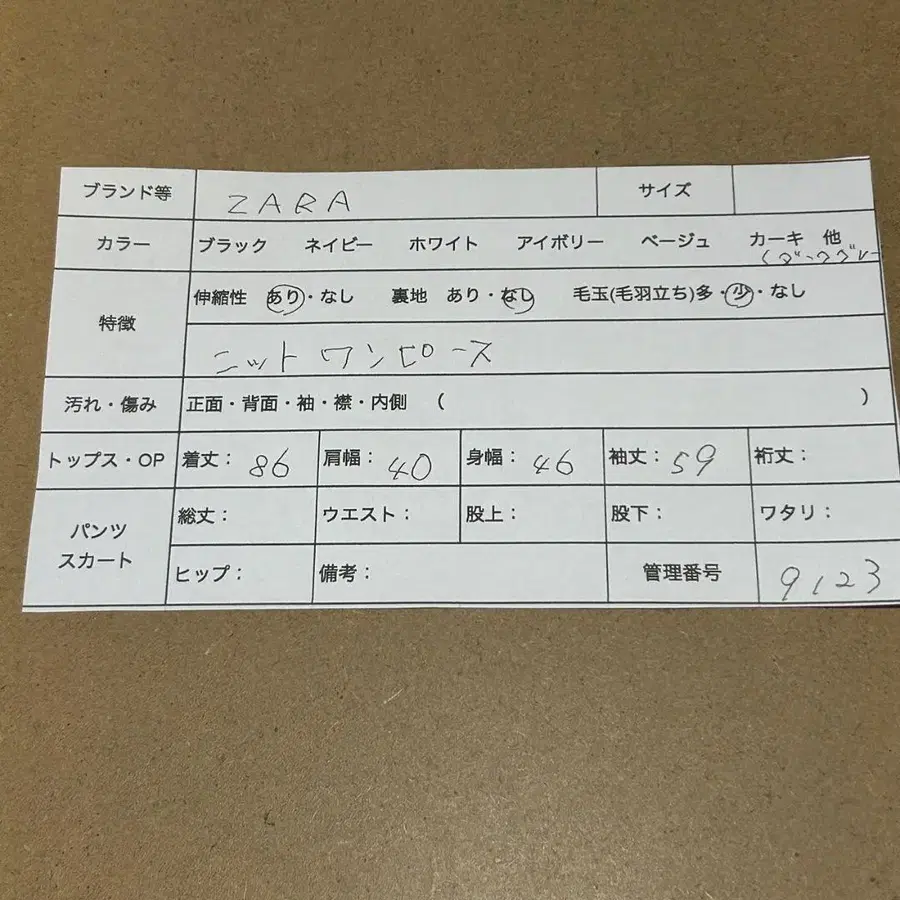 ブランド等 ZARA サイズ
カラー ブラック ネイビー ホワイト アイボリー ベージュ カーキ 他
特徴 伸縮性 あり・なし 裏地 あり・なし 毛玉(毛羽立ち)多・少・なし
ニットワンピース
汚れ・傷み 正面・背面・袖・襟・内側 ( )
トップス・OP 着丈: 86 肩幅: 40 身幅: 46 袖丈: 59 裄丈:
パンツ スカート 総丈: ウエスト: 股上: 股下: ワタリ:
ヒップ: 備考: 管理番号 9123